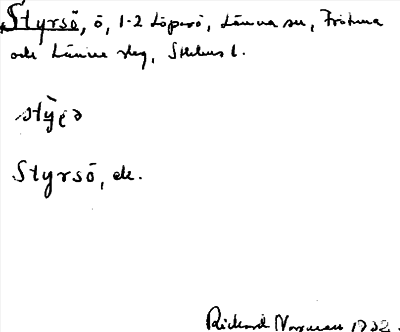 Styrsö, ö, 1-2 Löparö, Länna sn, Fröt una
och Länna slg, Sthlms l.
Styrsö, ek.
Rickard Norman 1932.